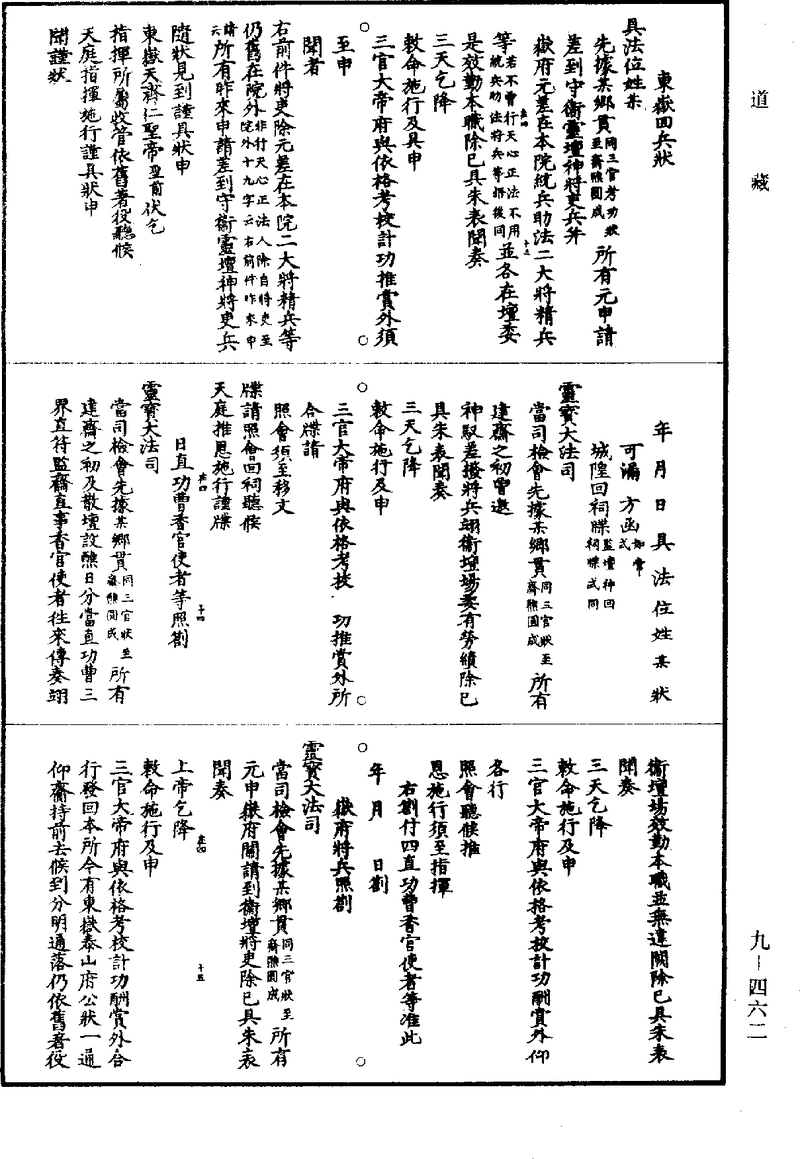 道藏
九-四六二
東嶽回兵狀
具法位姓某
先據某鄉貫同三官考功狀至齋醮圓成所有元申請
差到守衛靈壇神將吏兵并
嶽府元差在本院統兵助法二大將精兵
等若不曾行天心正法不用統兵助法將兵等語後同並各在壇委
是效勤本職除已具朱表聞奏
三天乞降
敕命施行及具申
三官大帝府與依格考校計功推賞外須
至申
聞者
右前件將吏除元差在本院二大將精兵等
仍舊在院外非行天心正法人除自將吏至院外十九字云右前件昨來申請六所有昨來申請差到守衛靈壇神將吏兵
隨狀見到謹具狀申
東嶽天齊仁聖帝丑前伏乞
指揮所屬收管依舊著役聽候
天庭指揮施行謹具狀申
聞謹狀
年月日具法位姓某狀
可漏方函如常式
城隍回祠牒監壇神回祠牒式同
靈寶大法司
當司檢會先據某鄉貫同三官狀至齋醮圓成所有
建齋之初曾邀
神馭差撥將兵翊衛壇場委有勞績除已
具朱表聞奏
三天乞降
敕命施行及申
三官大帝府與依格考校功推賞外所
合牒請
照會須至移文
牒請照會回祠聽候
天庭推恩施行謹牒
日直功曹香官使者等照劄
靈寶大法司
當司檢會先據某鄉貫同三官狀至齋醮圓成所有
建齋之初及散壇設醮日分當直功曹三
界直符監齋直事香官使者往來傳奏翊
衛壇場效勤本職並無違闕除已具朱表
聞奏
三天乞降
敕命施行及申
三官大帝府與依格考校計功酬賞外仰
各行
照會聽候推
恩施行須至指揮
右劄付四直功曹香官使者等准此
年月日劄
嶽府將兵照劄
靈寶大法司
當司檢會先據某鄉貫同三官狀至齋醮圓成所有
元申嶽府關請到衛壇將吏除已具朱表
聞奏
上帝乞降
敕命施行及申
三官大帝府與依格考校計功酬賞外合
行發回本所今有東嶽泰山府公狀一通
仰齎持前去候到分明通落仍依舊著役